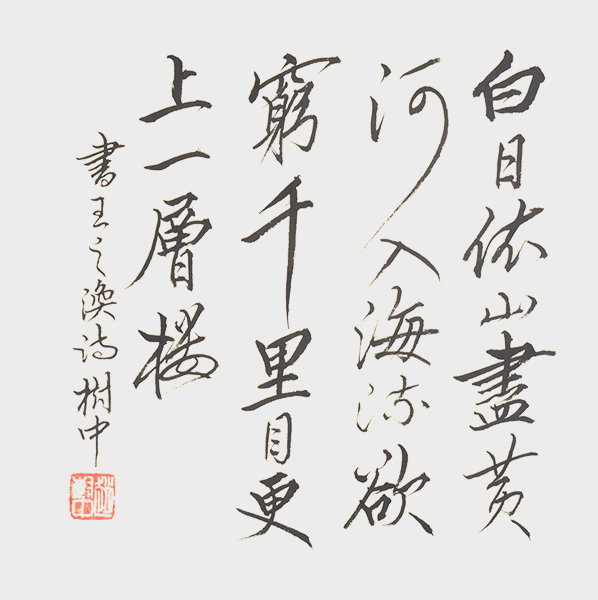 白日依山盡黃
河入海流欲
窮千里目更
上一層樓
書王之渙詩樹中